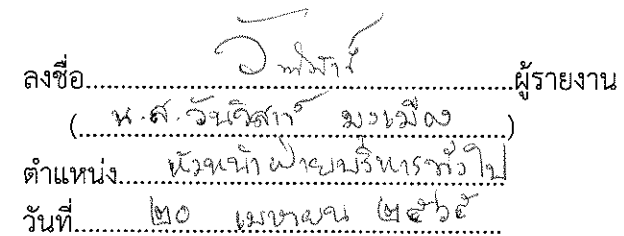 ลงชื่อ ผู้รายงาน
(น.ส.วันวิสาข์)
ตำแหน่ง หัวหน้าฝ่ายบริหารทั่วไป
วันที่ ๒๐ เมษายน ๒๕๖๕